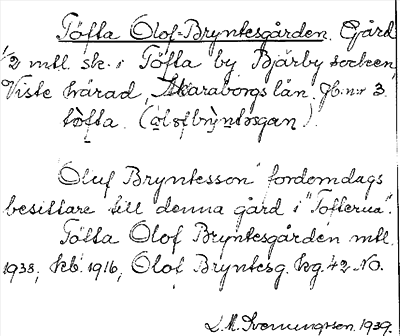 Töfta Olof-Bryntesgården. Gård
1/2 mtl. sk. i Töfta by Bjärby socken
Viste härad, Skaraborgs län. Jb. n:r 3.
tòfta. (ọlofbrỳntəsgan).
Oluf Bryntesson" fordomdags
besittare till denna gård i "Tofterua".
Töfta Olof Bryntesgården mtl.
1938; kb. 1916, Olof Bryntesg. hg. 42 NO.
L. M. Svenungsson. 1939.